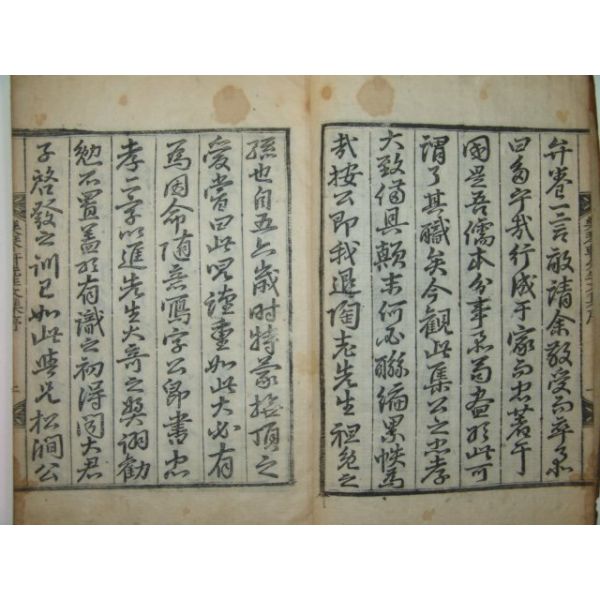 弁卷一言敢請余敬受而卒業
曰多乎哉行成于家而忠著于
國是吾儒本分事業苟盡於此可
謂了其職矣今觀此集公之忠孝
大致備具顚末何必聯編累帙爲
哉按公卽我退陶老先生袒免之
孫也自五六歲時特蒙撫頂之
愛嘗曰此兒謹重如此大必有
爲因命隨意寫字公卽書忠
孝二字以進先生大奇之奬詡勸
勉不置盖於有識之初得聞大君
子啓發之訓已如此與兄松澗公